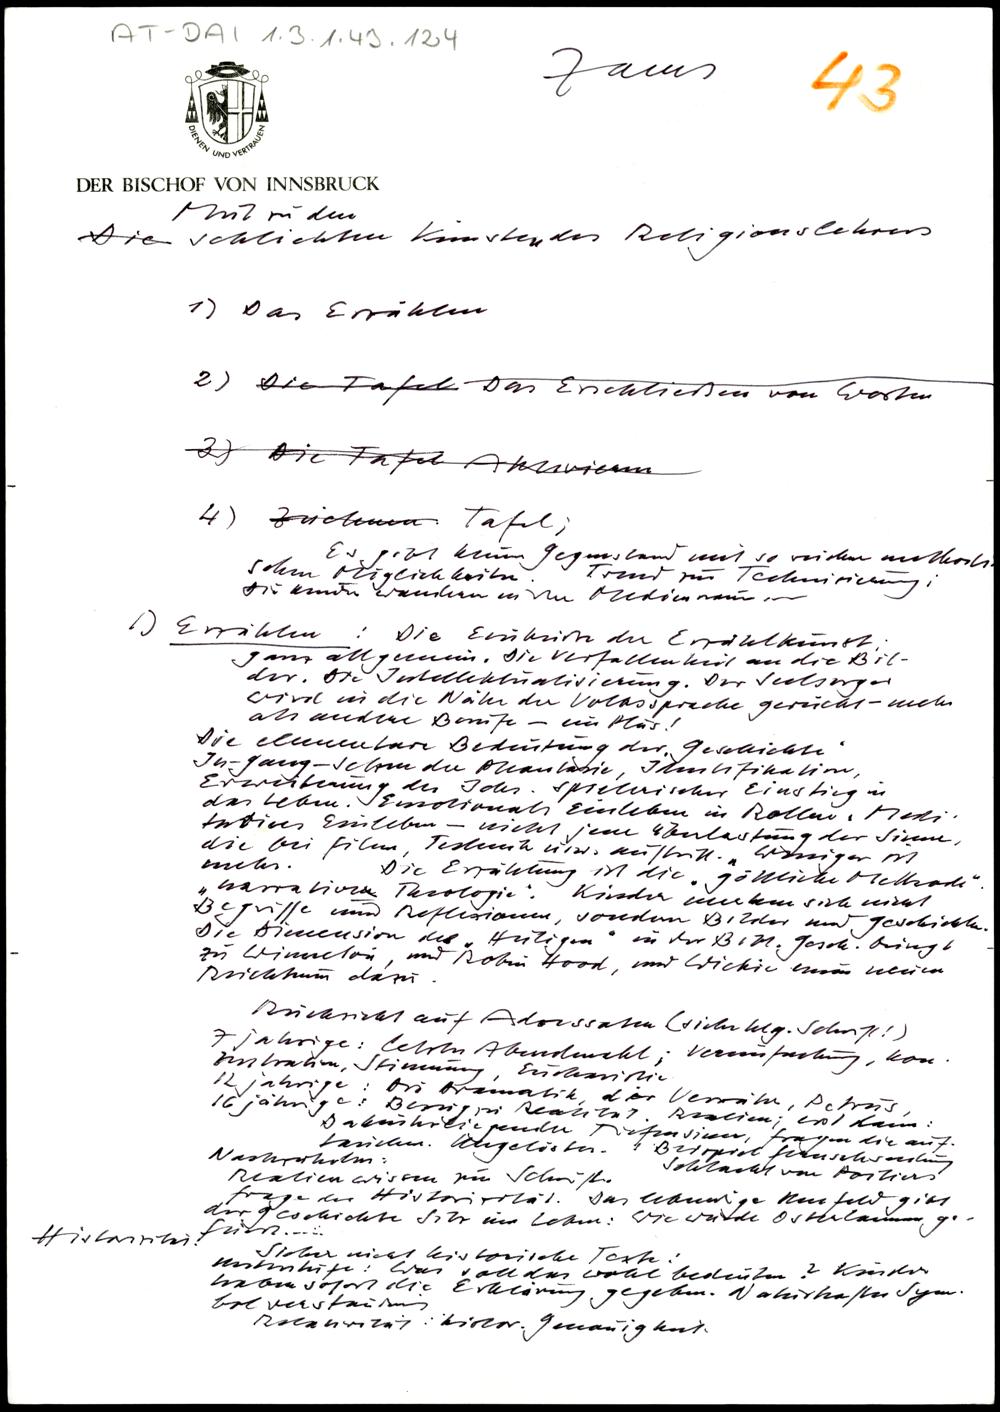 AT-DAI 1.3.1.43.124
Zams
43
DIENEN UND VERTRAUEN
DER BISCHOF VON INNSBRUCK
Mut zu den
Die schlichten Künsten des Religionslehrers
1) Das Erzählen
2) Die Tafel Das Erschließen von Worten
3) Die Tafel Aktivieren
4) Zeichnen Tafel;
Es gibt keinen Gegenstand mit so reichen methodi-
schen Möglichkeiten. Trend zur Technisierung;
Die Kinder wandern in den Medienraum
1) Erzählen : Die Einbuße der Erzählkunst;
ganz allgemein. Die Verfallenheit an die Bil-
der. Die Intellektualisierung. Der Seelsorger
wird in die Nähe der Volkssprache gerückt - mehr
als andere Berufe - ein Plus!
Die elementare Bedeutung der „Geschichte"
In-gang-Setzen der Phantasie, Identifikation,
Erweiterung des Ichs. Spielerischer Einstieg in
das Leben. Emotionales Einleben in Rollen. Medi-
tatives Einleben - nicht jene Überlastung der Sinne,
die bei Film, Technik usw. auftritt. „Weniger ist
mehr. Die Erzählung ist die „göttliche Methode".
„narrativen Theologie". Kinder merken sich nicht
Begriffe und Reflexionen, sondern Bilder und Geschichten.
Die Dimension des „Heiligen" in der Bibl. Gesch. bringt
zu Winnetou, und Robin Hood, und Wickie einen neuen
Reichtum dazu.
Rücksicht auf Adressaten (siehe hlg. Schrift!)
7 jährige: Letztes Abendmahl; Vereinfachung, Kon-
zentration, Stimmung, Eucharistie
12 jährige: Die Dramatik, der Verräter, Petrus,
16 jährige: Bezug zu Realität. Realien; erst dann:
Dahinterliegende Tiefensinn, Fragen die auf-
tauchen. Ungelöstes. Beispiel Fernsehsendung
Schlacht von Poitiers
Nachzuholen:
Realienwissen zur Schrift.
Frage der Historizität. Das lebendige Umfeld gibt
der Geschichte Sitz im Leben: Wie wurde Osterlamm ge-
feiert....
Historizität!
Sicher nicht historische Texte:
: Was soll das wohl bedeuten? Kinder
haben sofort die Erklärung gegeben. Naturhaftes Sym-
bolverständnis
Relativität: histor. Genauigkeit.